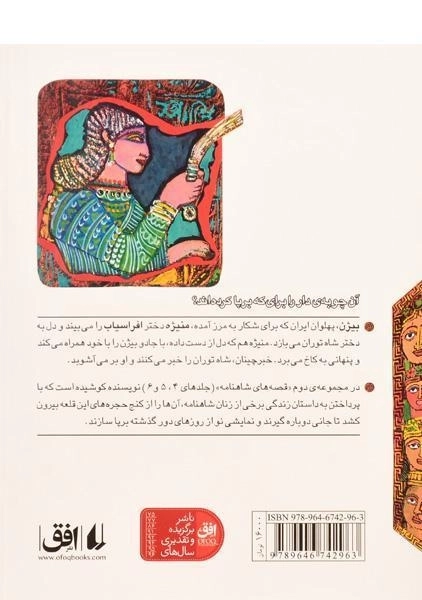 آن چوبه‌ی دار را برای که برپا کرده‌اند؟
بیژن، پهلوان ایران که برای شکار به مرز آمده، منیژه دختر افراسیاب را می‌بیند و دل به
دختر شاه توران می‌بازد. منیژه هم که دل از دست داده، با جادو بیژن را با خود همراه می‌کند
و پنهانی به کاخ می‌برد. خبرچینان، شاه توران را خبر می‌کنند و او بر می‌آشوبد.
در مجموعه‌ی دوم «قصه‌های شاهنامه» (جلدهای ۴، ۵ و ۶) نویسنده کوشیده است که با
پرداختن به داستان زندگی برخی از زنان شاهنامه، آن‌ها را از کنج حجره‌های این قلعه بیرون
کشد تا جانی دوباره گیرند و نمایشی نو از روزهای دور گذشته برپا سازند.
افق
www.ofoqbooks.com
ناشر
برگزیده
و تقدیری
سال‌های
افق
OFOQ
۱۶۰۰۰ تومان
ISBN 978-964-6742-96-3
9 789646 742963